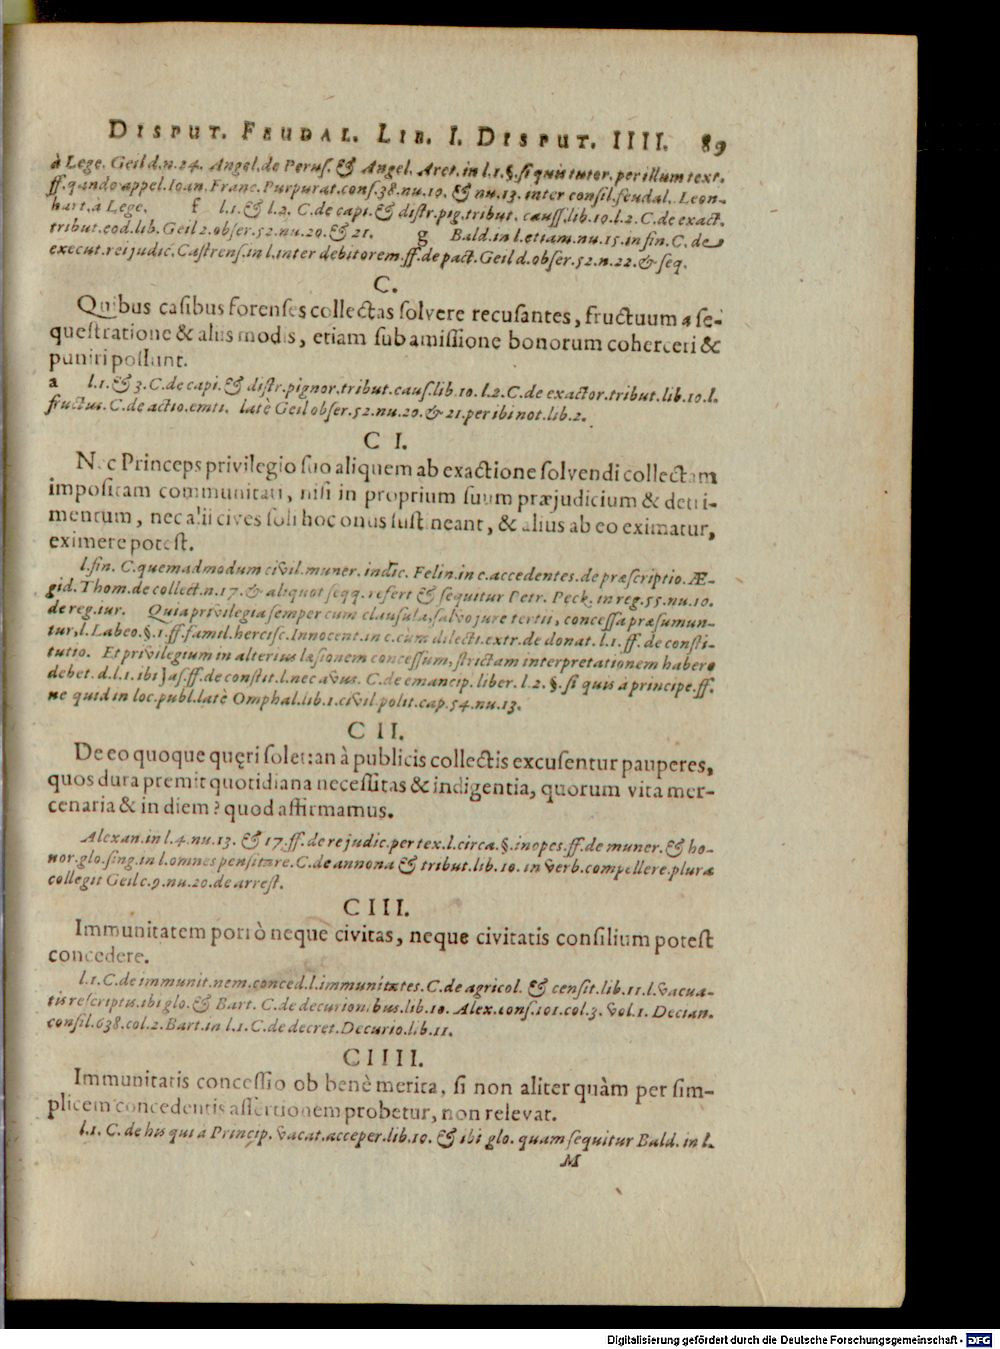 DISPUT. FEUDAL. LIB. I. DISPUT. IIII. 89
à Lege. Geil d.n.24. Angel.de Peruſ. & Angel. Aret. in l.1.§.ſi quis tutor.per illum text.
ff.quando appel. Ioan. Franc. Purpurat.conſ.38.nu.10. & nu.13. inter conſil.feudal. Leon-
hart.à Lege. f l.1.& l.2. C.de capi.& diſtr.pig.tribut. cauſſ.lib.10.l.2.C.de exact.
tribut.eod.lib. Geil 2.obſer.52.nu.20.& 21. g Bald.in l.etiam.nu.15.in fin. C. de
execut.rei judic. Caſtrenſ.in l.inter debitorem.ff.de pact.Geil d.obſer.52.n.22.& ſeq.
C.
Quibus caſibus forenſes collectas ſolvere recuſantes, fructuum a ſe-
queſtratione & aliis modis, etiam ſub amiſſione bonorum coherceri &
puniri poſſunt.
a l.1.& 3.C.de capi.& diſtr.pignor.tribut.cauſ.lib.10. l.2.C.de exactor.tribut.lib.10.l.
fructus.C.de actio.emti. latè Geil obſer.52.nu.20.& 21.per ibi not.lib.2.
C I.
Nec Princeps privilegio ſuo aliquem ab exactione ſolvendi collectam
impoſitam communitati, niſi in proprium ſuum præjudicium & detri-
mentum, nec alii cives ſoli hoc onus ſuſtineant, & alius ab eo eximatur,
eximere poteſt.
l.fin. C.quemadmodum civil.muner. indic. Felin.in c.accedentes.de præſcriptio. Æ-
gid. Thom.de collect.n.17.& aliquot ſeqq.refert & ſequitur Petr. Peck. in reg.55.nu.10.
de reg.iur. Quia privilegia ſemper cum clauſula, ſalvo jure tertii, conceſſa præſumun-
tur, l.Labeo.§.1.ff.famil.herciſc.Innocent.in c.cum dilecti.extr.de donat. l.1.ff.de conſti-
tutio. Et privilegium in alterius læſionem conceſſum, ſtrictam interpretationem habere
debet. d.l.1.ibi Jaſ.ff.de conſtit.l.nec avus. C.de emancip. liber. l.2.§.ſi quis à principe.ff.
ne quid in loc.publ.latè Omphal.lib.1.civil.polit.cap.54.nu.13.
C II.
De eo quoque quęri ſolet: an à publicis collectis excuſentur pauperes,
quos dura premit quotidiana neceſſitas & indigentia, quorum vita mer-
cenaria & in diem? quod affirmamus.
Alexan.in l.4.nu.13. & 17.ff.de re judic.per tex.l.circa.§.inopes.ff.de muner.& ho-
nor.glo.ſing.in l.omnes penſitare.C.de annona & tribut.lib.10. in verb.compellere.plura
collegit Geil c.9.nu.20.de arreſt.
C III.
Immunitatem porrò neque civitas, neque civitatis conſilium poteſt
concedere.
l.1.C.de immunit.nem.conced.l.immunitates. C.de agricol. & cenſit.lib.11.l.vacua-
tis reſcriptis.ibi glo.& Bart. C.de decurionibus.lib.10. Alex.conſ.101.col.3. vol.1. Decian.
conſil.638.col.2.Bart.in l.1.C.de decret.Decurio.lib.11.
C IIII.
Immunitatis conceſſio ob benè merita, ſi non aliter quàm per ſim-
plicem concedentis aſſertionem probetur, non relevat.
l.1. C.de his qui à Princip. vacat.acceper.lib.10. & ibi glo. quam ſequitur Bald. in l.
M
Digitalisierung gefördert durch die Deutsche Forschungsgemeinschaft - DFG